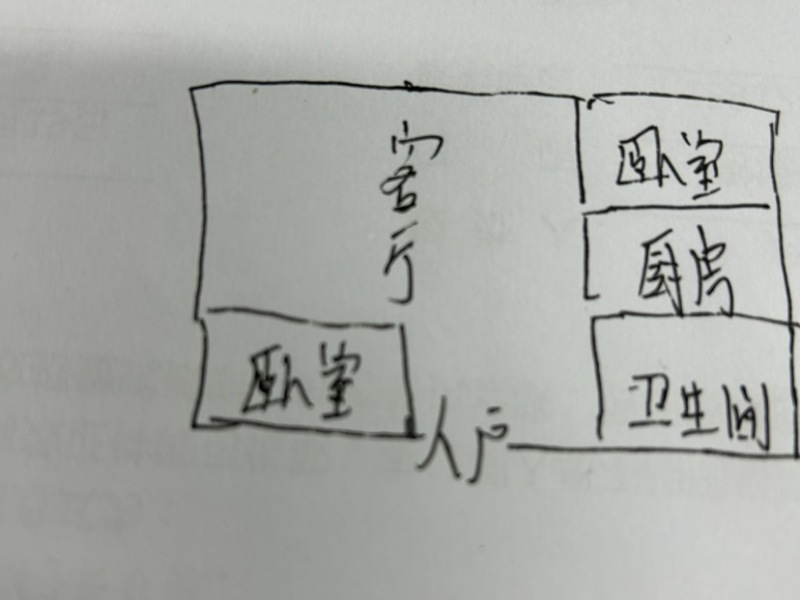 客厅
卧室
厨房
卧室
卫生间
入户